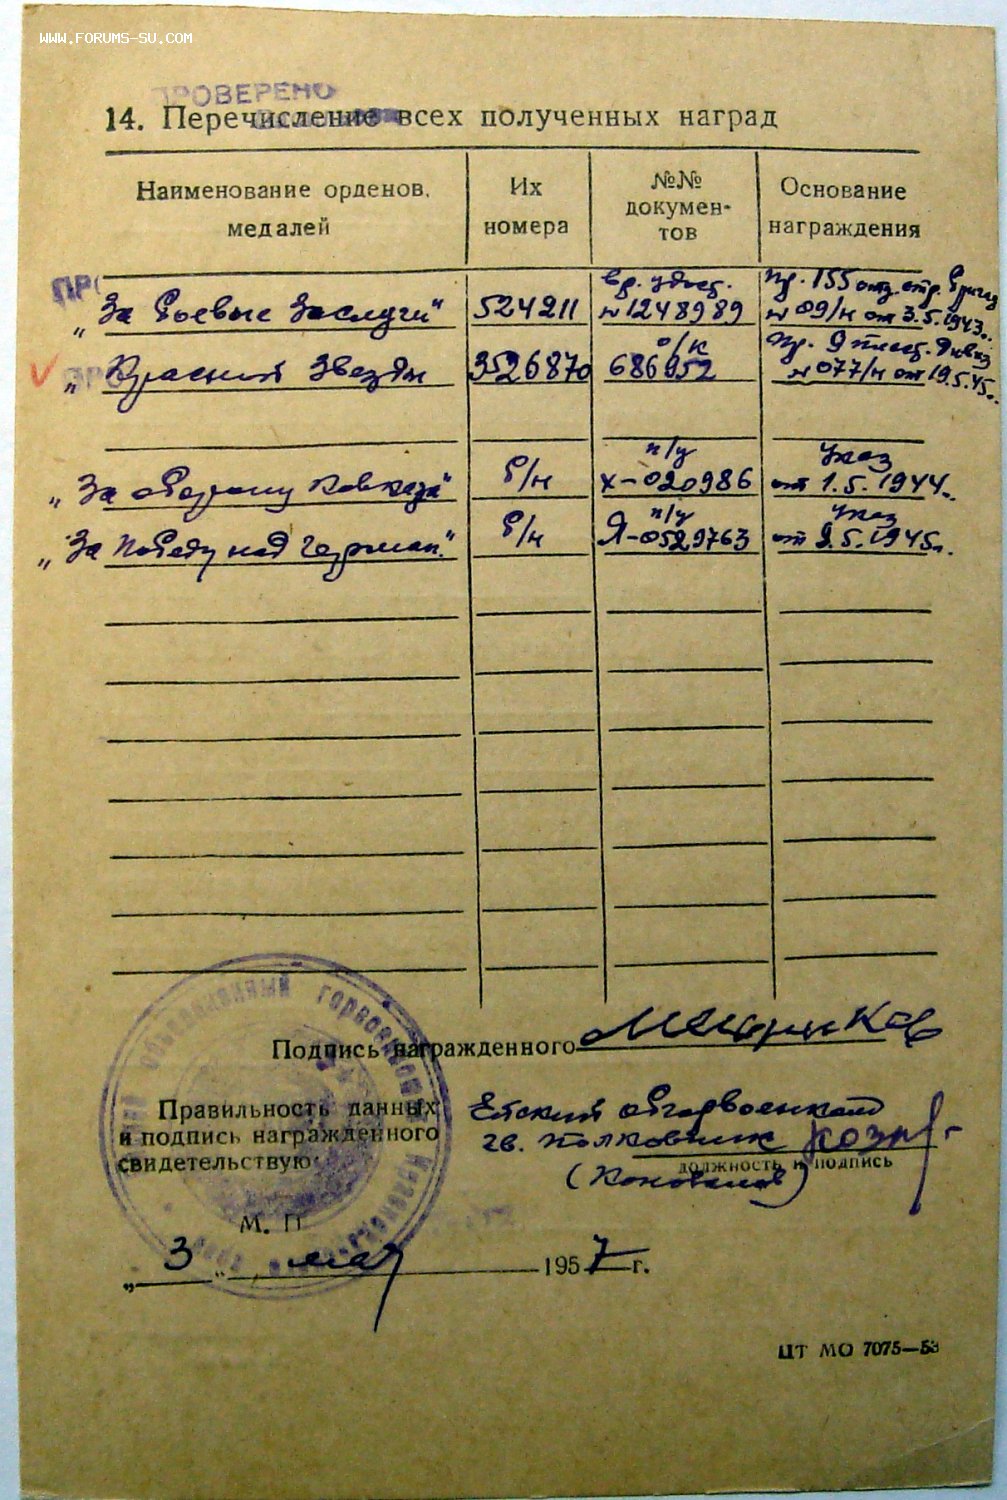 WWW.FORUMS-SU.COM
ПРОВЕРЕНО
14. Перечисление всех полученных наград
Наименование орденов, медалей
Их номера
№№ документов
Основание награждения
„За боевые заслуги" 524211 вр. удост. № 1248989 Пр. 155 отд. стр. бригад № 09/н от 3.5.1943г.
„Красной Звезды 3526870 о/к 686952 Пр. 9 пласт. дивиз № 077/н от 19.5.45г.
„За оборону Кавказа" б/н п/у Х-020986 Указ от 1.5.1944г.
„За Победу над Герман." б/н п/у Я-0529763 Указ от 9.5.1945г.
Подпись награжденного
Правильность данных
и подпись награжденного
свидетельствую:
Ейский обгорвоенком
гв. полковник
должность и подпись
(Коновалов)
М. П.
„3" мая 1957 г.
ЦТ МО 7075—53